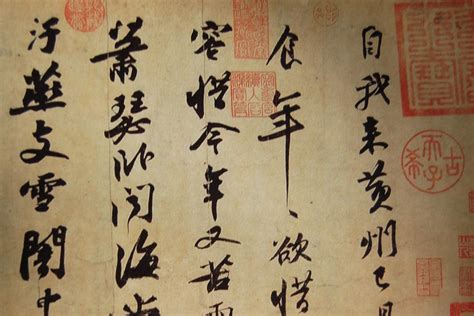 自我来黄州已
食年〻欲惜
容惜今年又苦雨
蕭瑟卧聞海
汙燕支雪闇中
古希天子